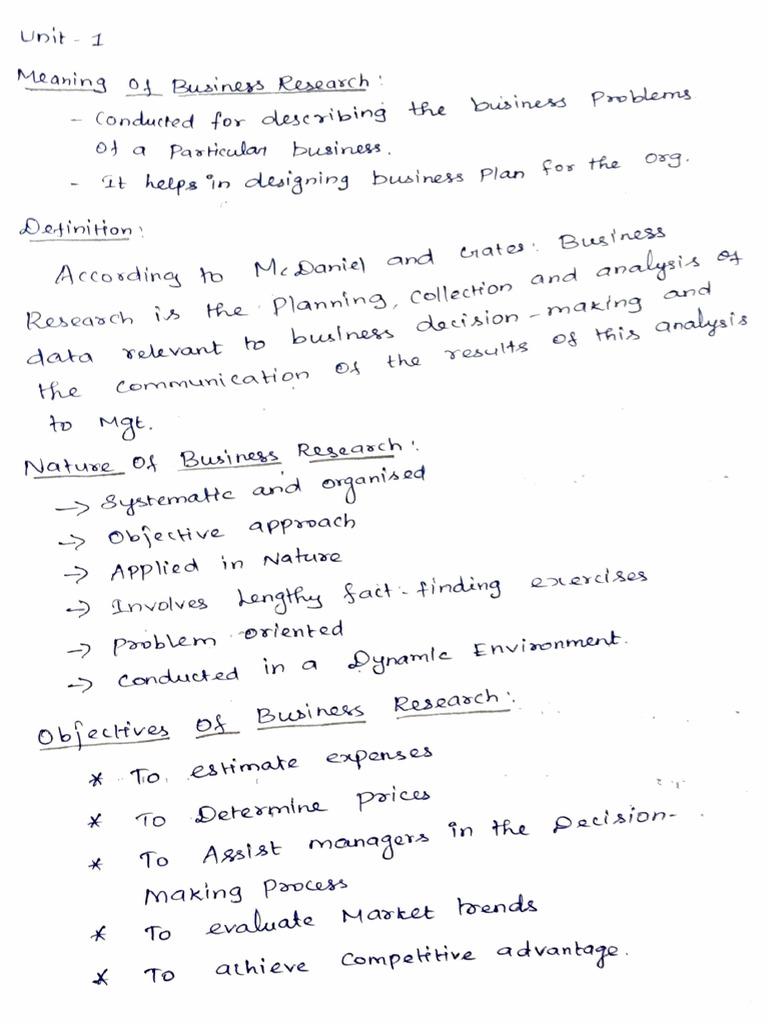 Unit - 1
Meaning Of Business Research :
- Conducted for describing the business Problems
Of a Particular business.
- It helps in designing business Plan for the org.
Definition :
According to McDaniel and Gates : Business
Research is the Planning, Collection and analysis of
data relevant to business decision-making and
the communication of the results of this analysis
to Mgt.
Nature Of Business Research :
→ Systematic and organised
→ Objective approach
→ Applied in Nature
→ Involves Lengthy fact-finding exercises
→ Problem oriented
→ Conducted in a Dynamic Environment.
Objectives Of Business Research :
* To estimate expenses
* To Determine Prices
* To Assist managers in the Decision-
Making Process
* To evaluate Market trends
* To achieve Competitive advantage.